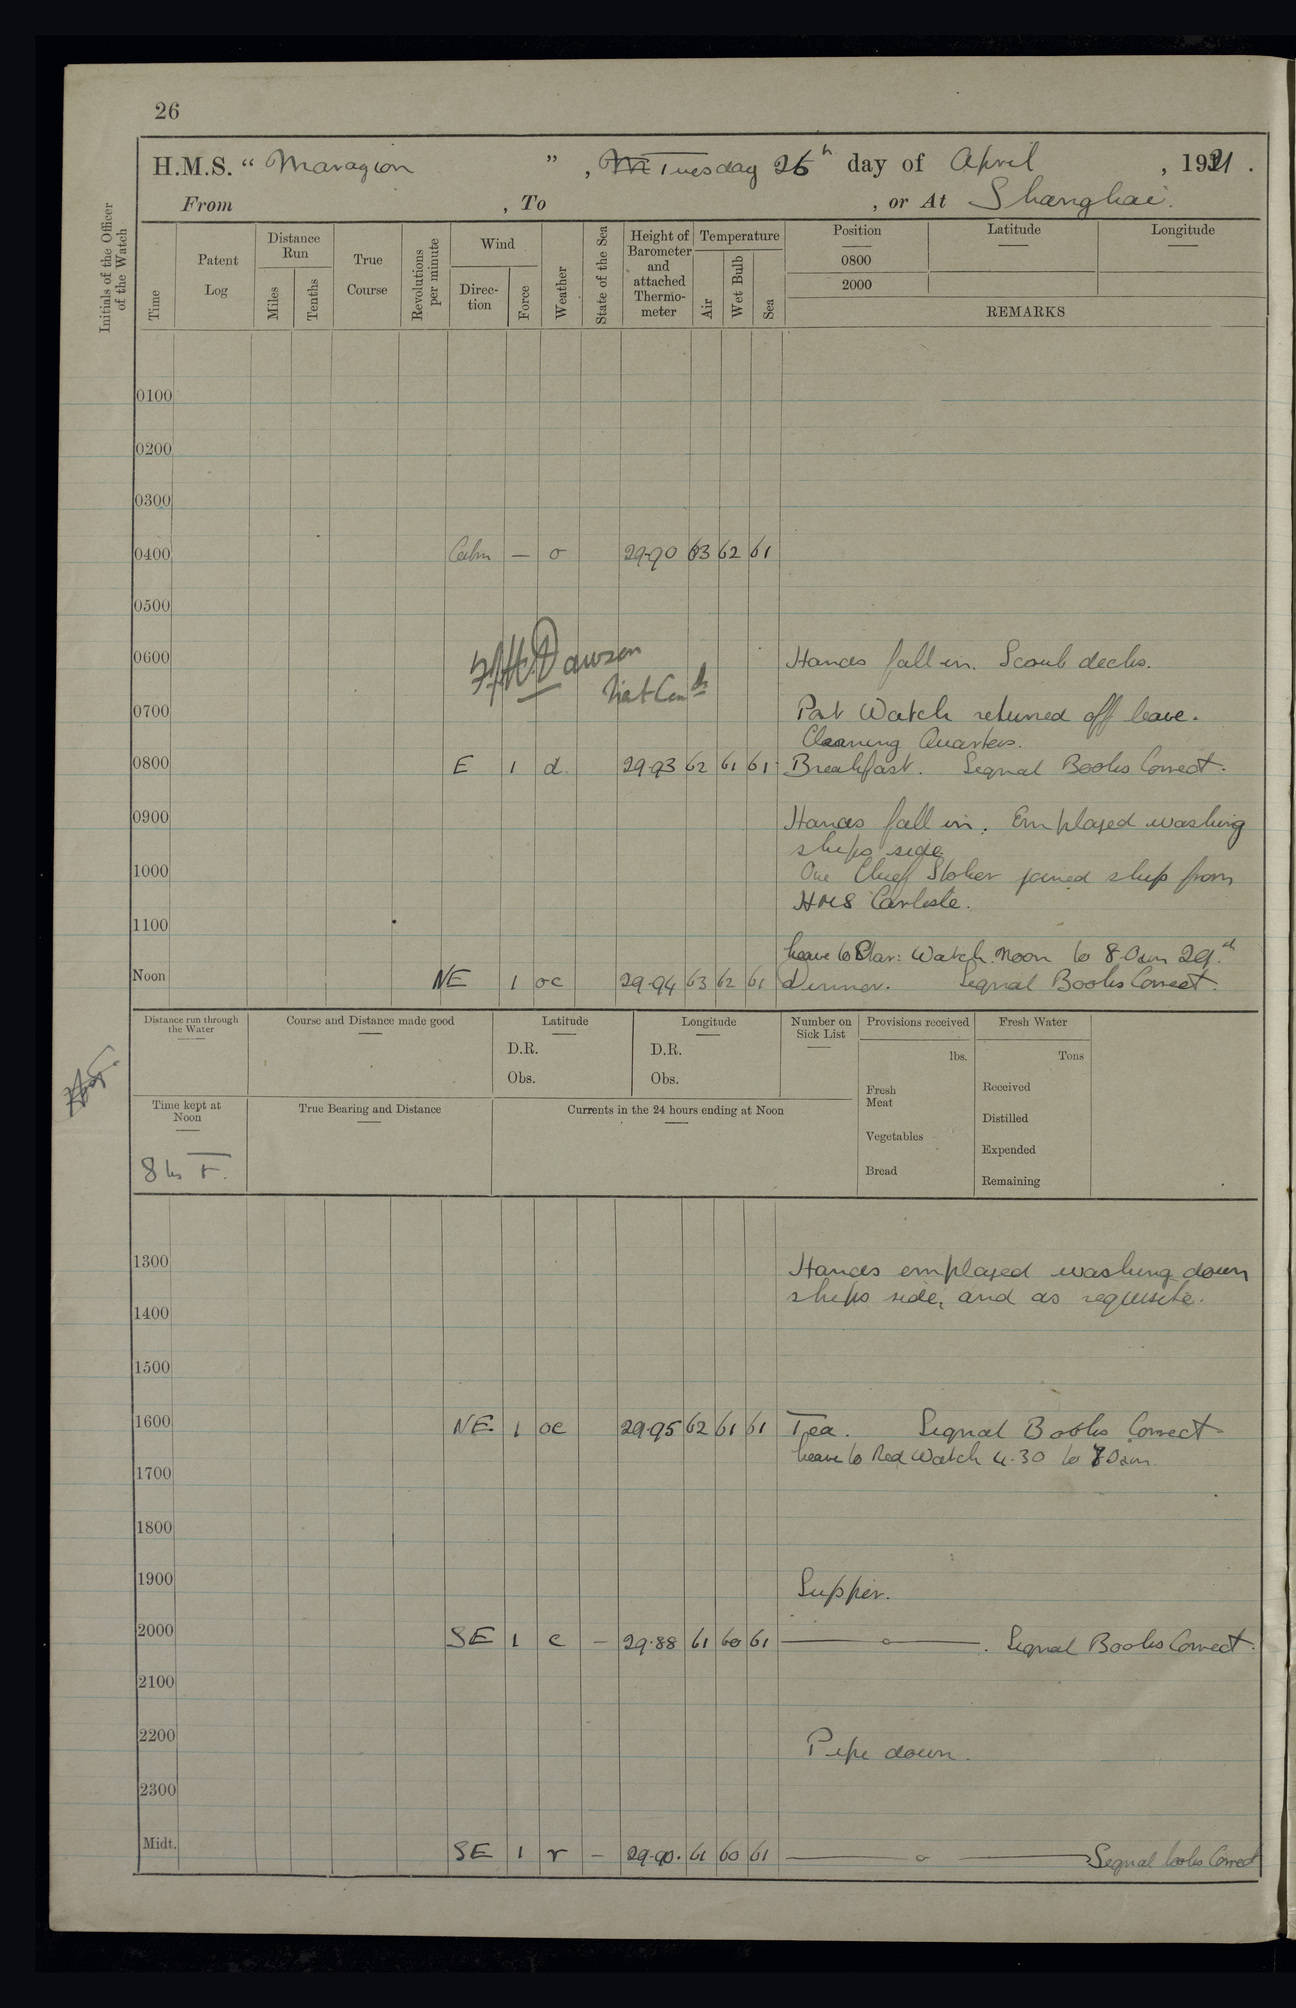 26
H.M.S. “ Marazion ” , Tuesday 26th day of April , 1921 .
From , To , or At Shanghai.
Initials of the Officer of the Watch
Time
Patent Log
Distance Run
Miles
Tenths
True Course
Revolutions per minute
Wind
Direc-tion
Force
Weather
State of the Sea
Height of Barometer and attached Thermo-meter
Temperature
Air
Wet Bulb
Sea
Position
0800
2000
Latitude
Longitude
REMARKS
0100
0200
0300
0400 Calm — o 29.90 63 62 61
0500
0600 Hands fall in. Scrub decks.
Dawson
0700 Port Watch returned off leave.
Cleaning Quarters.
0800 E 1 d. 29.93 62 61 61 Breakfast. Signal Books Correct.
0900 Hands fall in. Employed washing
ships side.
1000 One Chief Stoker joined ship from
HMS Carlisle.
1100
leave to Star: Watch. Noon to 8.0am
Noon NE 1 oc 29.94 63 62 61 Dinner. Signal Books Correct.
Distance run through the Water
Course and Distance made good
Latitude
D.R.
Obs.
Longitude
D.R.
Obs.
Number on Sick List
Provisions received
lbs.
Fresh Meat
Vegetables
Bread
Fresh Water
Tons
Received
Distilled
Expended
Remaining
Time kept at Noon
8 hrs F.
True Bearing and Distance
Currents in the 24 hours ending at Noon
1300 Hands employed washing down
ships side, and as requisite.
1400
1500
1600 NE 1 oc 29.95 62 61 61 Tea. Signal Books Correct
leave to Red Watch 4.30 to 7.0am.
1700
1800
1900 Supper.
2000 SE 1 c — 29.88 61 60 61 ——— o ——— . Signal Books Correct.
2100
2200 Pipe down.
2300
Midt. SE 1 r — 29.90. 61 60 61 ——— o ——— Signal books Correct